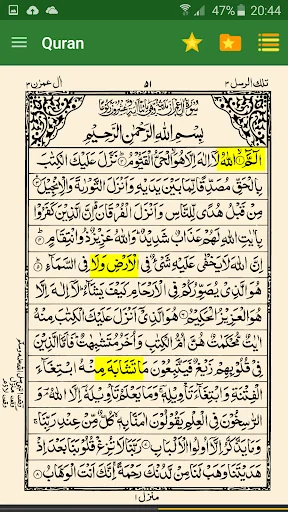 47% 20:44
Quran
تلك الرسل ٣ ٥١ اٰل عمرٰن ٣
بِسْمِ اللهِ الرَّحْمٰنِ الرَّحِيْمِ
الٓمّٓ ۙ اللهُ لَاۤ اِلٰهَ اِلَّا هُوَ الْحَيُّ الْقَيُّوْمُ ۙ نَزَّلَ عَلَيْكَ الْكِتٰبَ
بِالْحَقِّ مُصَدِّقًا لِّمَا بَيْنَ يَدَيْهِ وَاَنْزَلَ التَّوْرٰىةَ وَالْاِنْجِيْلَ ۙ
مِنْ قَبْلُ هُدًى لِّلنَّاسِ وَاَنْزَلَ الْفُرْقَانَ ۬ اِنَّ الَّذِيْنَ كَفَرُوْا
بِاٰيٰتِ اللهِ لَهُمْ عَذَابٌ شَدِيْدٌ ؕ وَاللهُ عَزِيْزٌ ذُو انْتِقَامٍ
اِنَّ اللهَ لَا يَخْفٰى عَلَيْهِ شَيْءٌ فِى الْاَرْضِ وَلَا فِى السَّمَآءِ
هُوَ الَّذِيْ يُصَوِّرُكُمْ فِى الْاَرْحَامِ كَيْفَ يَشَآءُ ؕ لَاۤ اِلٰهَ اِلَّا
هُوَ الْعَزِيْزُ الْحَكِيْمُ هُوَ الَّذِيْۤ اَنْزَلَ عَلَيْكَ الْكِتٰبَ مِنْهُ
اٰيٰتٌ مُّحْكَمٰتٌ هُنَّ اُمُّ الْكِتٰبِ وَاُخَرُ مُتَشٰبِهٰتٌ ؕ فَاَمَّا الَّذِيْنَ
فِيْ قُلُوْبِهِمْ زَيْغٌ فَيَتَّبِعُوْنَ مَا تَشَابَهَ مِنْهُ ابْتِغَآءَ
الْفِتْنَةِ وَابْتِغَآءَ تَاْوِيْلِهٖ ۚ وَمَا يَعْلَمُ تَاْوِيْلَهٗۤ اِلَّا اللهُ ۘ وَ
الرّٰسِخُوْنَ فِى الْعِلْمِ يَقُوْلُوْنَ اٰمَنَّا بِهٖ ۙ كُلٌّ مِّنْ عِنْدِ رَبِّنَا ۚ
وَمَا يَذَّكَّرُ اِلَّاۤ اُولُوا الْاَلْبَابِ رَبَّنَا لَا تُزِغْ قُلُوْبَنَا بَعْدَ اِذْ
هَدَيْتَنَا وَهَبْ لَنَا مِنْ لَّدُنْكَ رَحْمَةً ۚ اِنَّكَ اَنْتَ الْوَهَّابُ
منزل ١